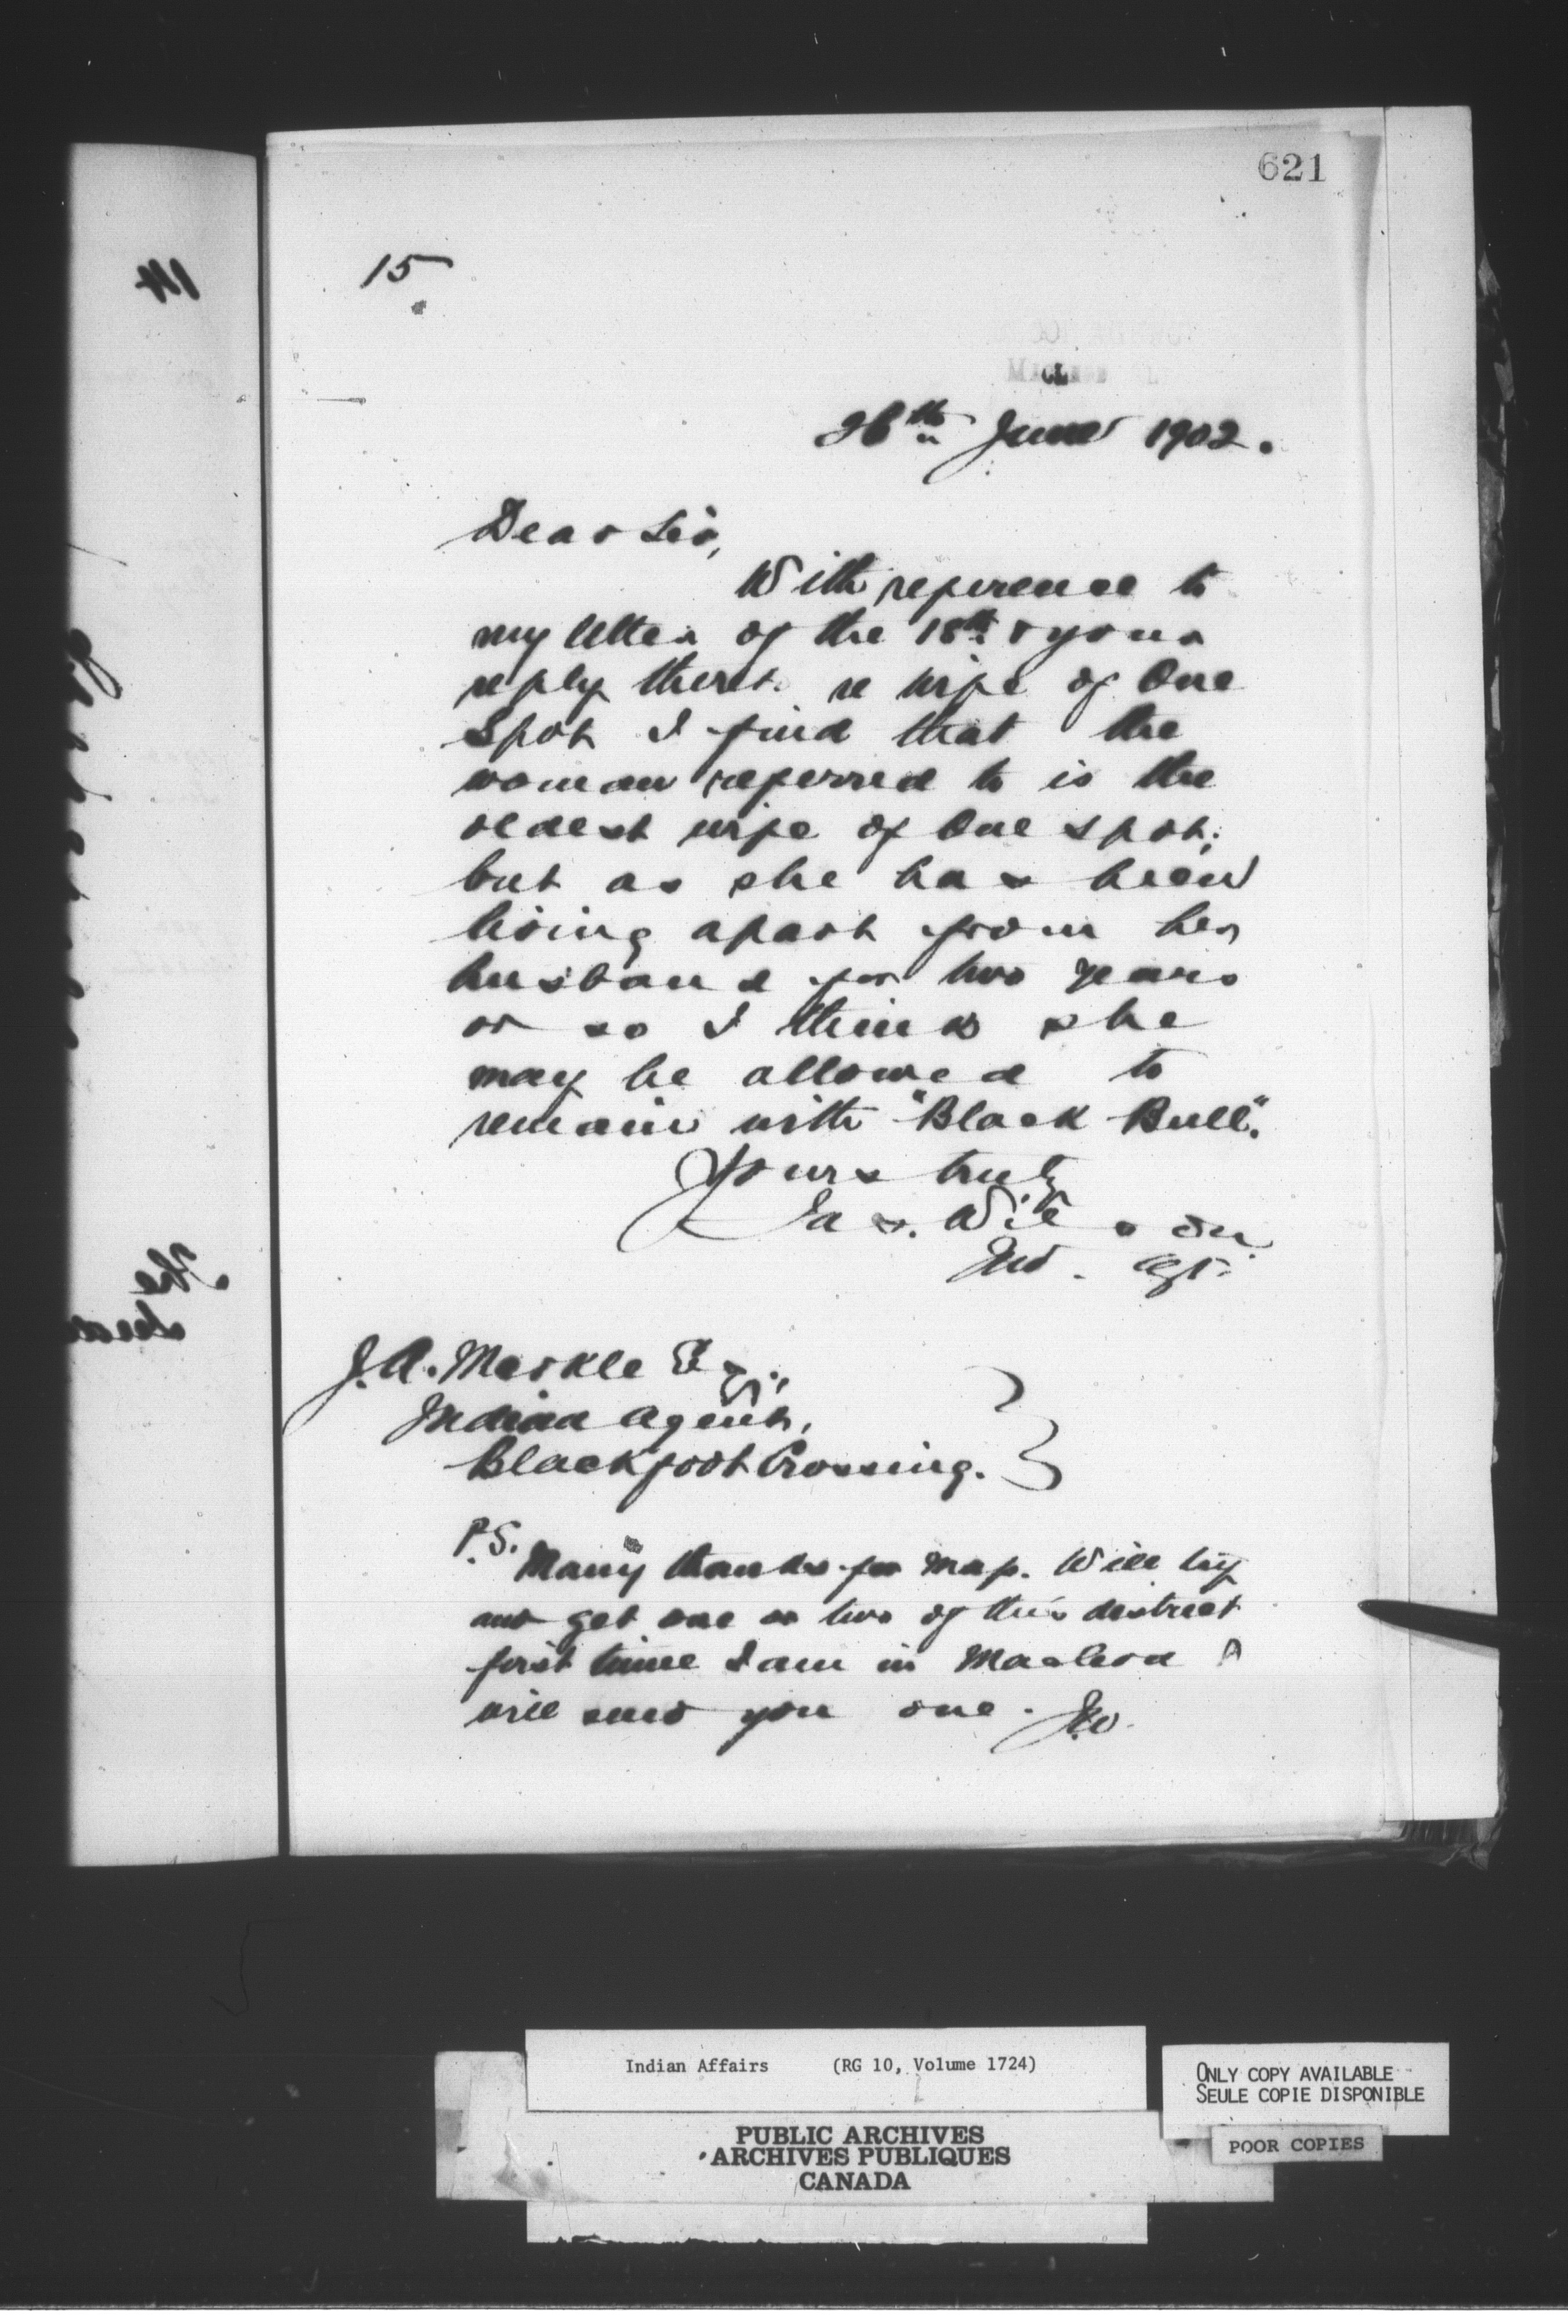 621
15
26th June 1902.
Dear Sir,
With reference to
my letter of the 18th & your
reply thereto re wife of One
Spot I find that the
woman referred to is the
oldest wife of One Spot;
but as she has been
living apart from her
husband for two years
or so I think she
may be allowed to
remain with "Black Bull".
Yours truly
Jas. Wilson
Ind. Agt.
J.A. Markle Esq.,
Indian Agent,
Blackfoot Crossing.
P.S.
Many thanks for map. Will try
and get one or two of this district
first time I am in Macleod &
will send you one. JW.
14
The
Indian Affairs (RG 10, Volume 1724)
PUBLIC ARCHIVES
ARCHIVES PUBLIQUES
CANADA
ONLY COPY AVAILABLE
SEULE COPIE DISPONIBLE
POOR COPIES